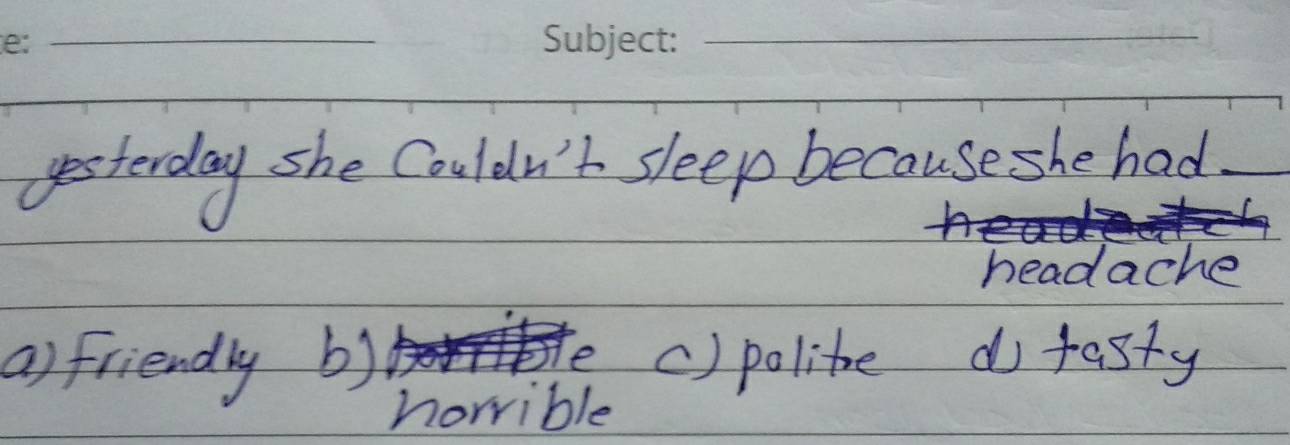 e: Subject:
yesterday she Couldn't sleep because she had
headache
a) Friendly b) horrible c) polite d) tasty